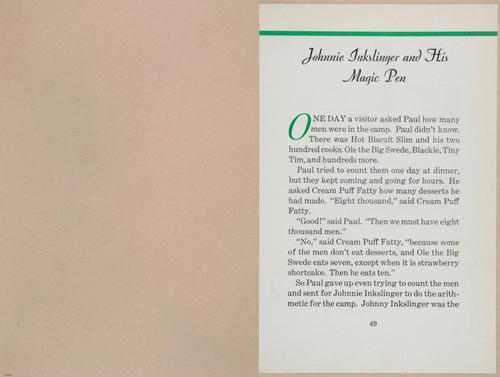 Johnnie Inkslinger and His
Magic Pen
ONE DAY a visitor asked Paul how many
men were in the camp. Paul didn't know.
There was Hot Biscuit Slim and his two
hundred cooks. Ole the Big Swede, Blackie, Tiny
Tim, and hundreds more.
Paul tried to count them one day at dinner,
but they kept coming and going for hours. He
asked Cream Puff Fatty how many desserts he
had made. "Eight thousand," said Cream Puff
Fatty.
"Good!" said Paul. "Then we must have eight
thousand men."
"No," said Cream Puff Fatty, "because some
of the men don't eat desserts, and Ole the Big
Swede eats seven, except when it is strawberry
shortcake. Then he eats ten."
So Paul gave up even trying to count the men
and sent for Johnnie Inkslinger to do the arith-
metic for the camp. Johnny Inkslinger was the
49